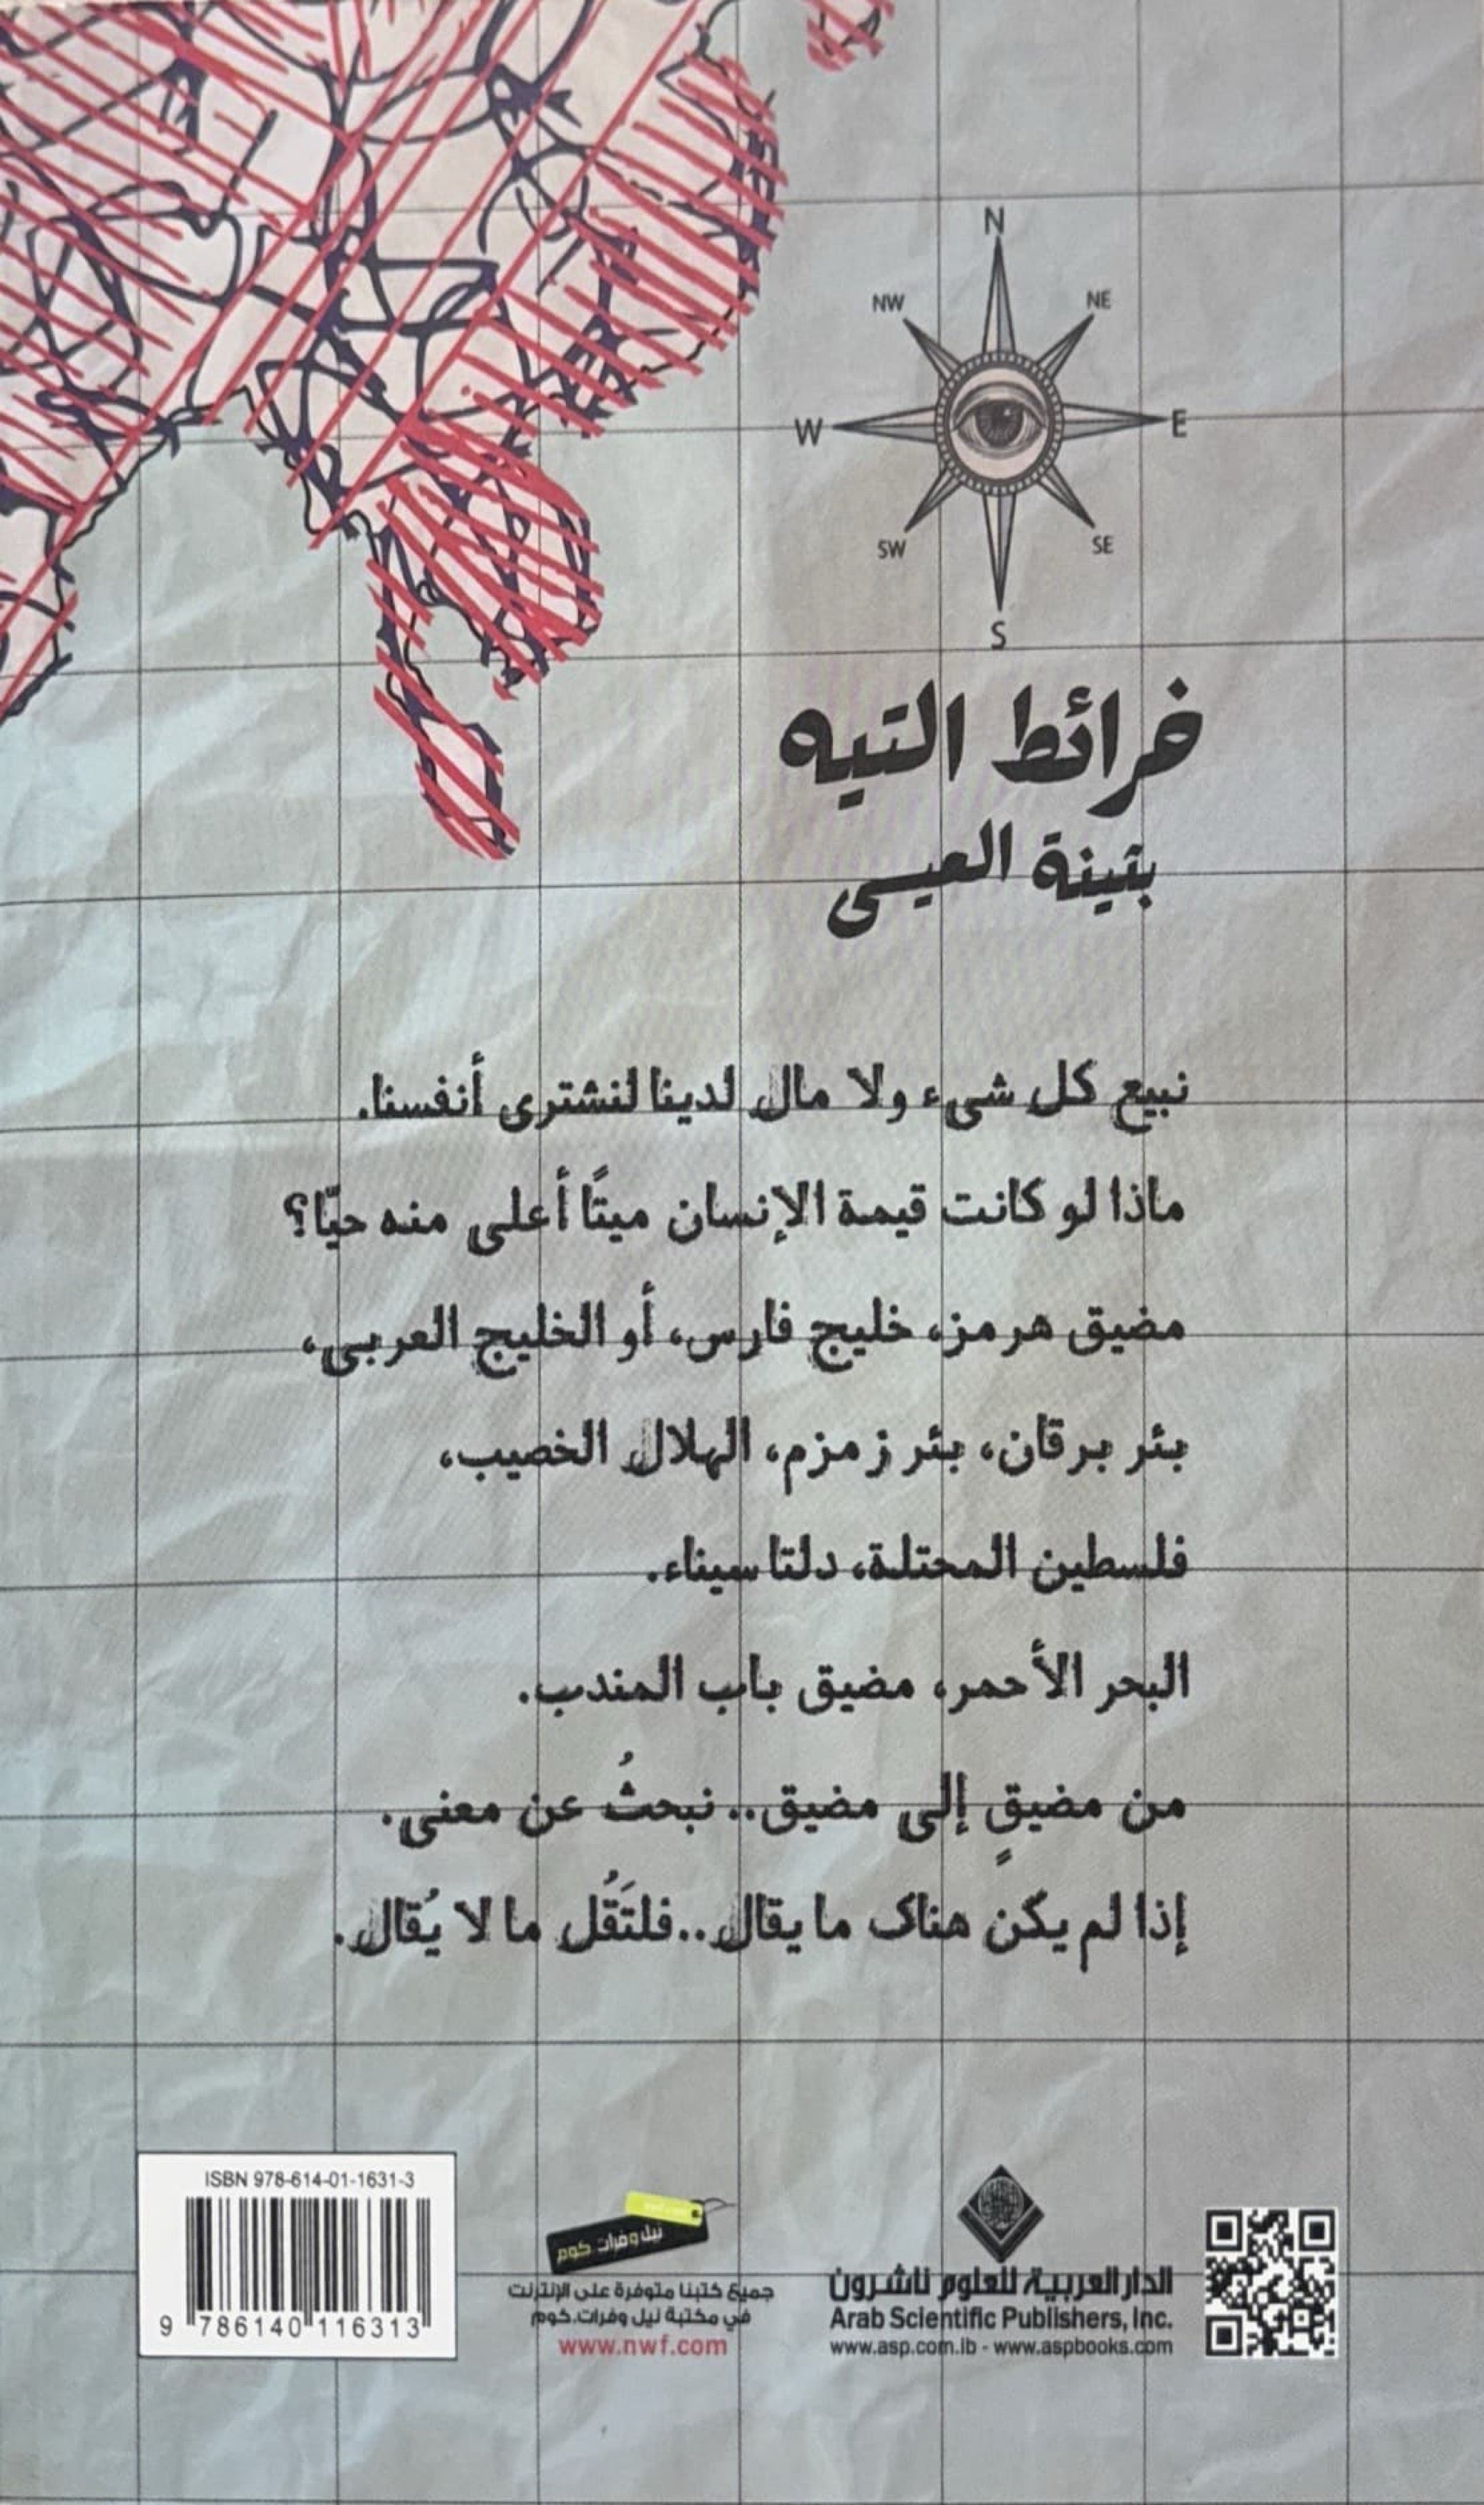 N
NW NE
W E
SW SE
S
خرائط التيه
بثينة العيسى
نبيع كل شيء ولا مال لدينا لنشتري أنفسنا.
ماذا لو كانت قيمة الإنسان ميتًا أعلى منه حيًّا؟
مضيق هرمز، خليج فارس، أو الخليج العربي،
بئر برقان، بئر زمزم، الهلال الخصيب،
فلسطين المحتلة، دلتا سيناء.
البحر الأحمر، مضيق باب المندب.
من مضيقٍ إلى مضيق.. نبحثُ عن معنى.
إذا لم يكن هناك ما يقال..فلتَقُل ما لا يُقال.
الدار العربية للعلوم ناشرون
Arab Scientific Publishers, Inc.
www.asp.com.lb - www.aspbooks.com
نيل وفرات.كوم
جميع كتبنا متوفرة على الإنترنت
في مكتبة نيل وفرات.كوم
www.nwf.com
ISBN 978-614-01-1631-3
9 786140 116313